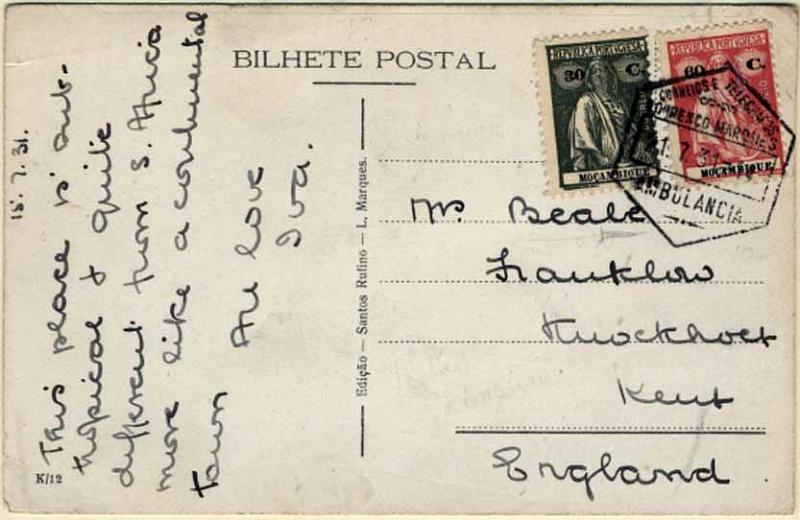 BILHETE POSTAL
15.7.31.
This place is sub-
tropical & quite
different from S. Africa
more like a continental
town
All love
Iva.
K/12
Edição — Santos Rufino — L. Marques.
REPUBLICA PORTUGUESA
30 C.
MOÇAMBIQUE
REPUBLICA PORTUGUESA
60 C.
MOÇAMBIQUE
CORREIOS E TELEGRAFOS
LOURENÇO MARQUES
7 31
AMBULANCIA
Mrs Beale
Franklow
Knockholt
Kent
England